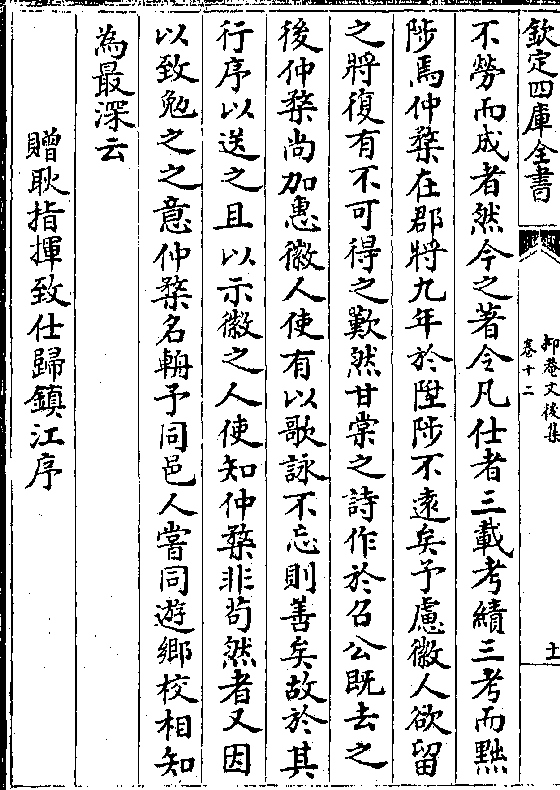 欽定四庫全書
抑菴文後集
卷十二
土
不勞而成者然今之著令凡仕者三載考績三考而黜
陟焉仲棻在郡將九年於陞陟不遠矣予慮徽人欲留
之將復有不可得之歎然甘棠之詩作於召公既去之
後仲棻尚加惠徽人使有以歌詠不忘則善矣故於其
行序以送之且以示徽之人使知仲棻非苟然者又因
以致勉之之意仲棻名輈予同邑人嘗同遊鄉校相知
為最深云
贈耿指揮致仕歸鎮江序